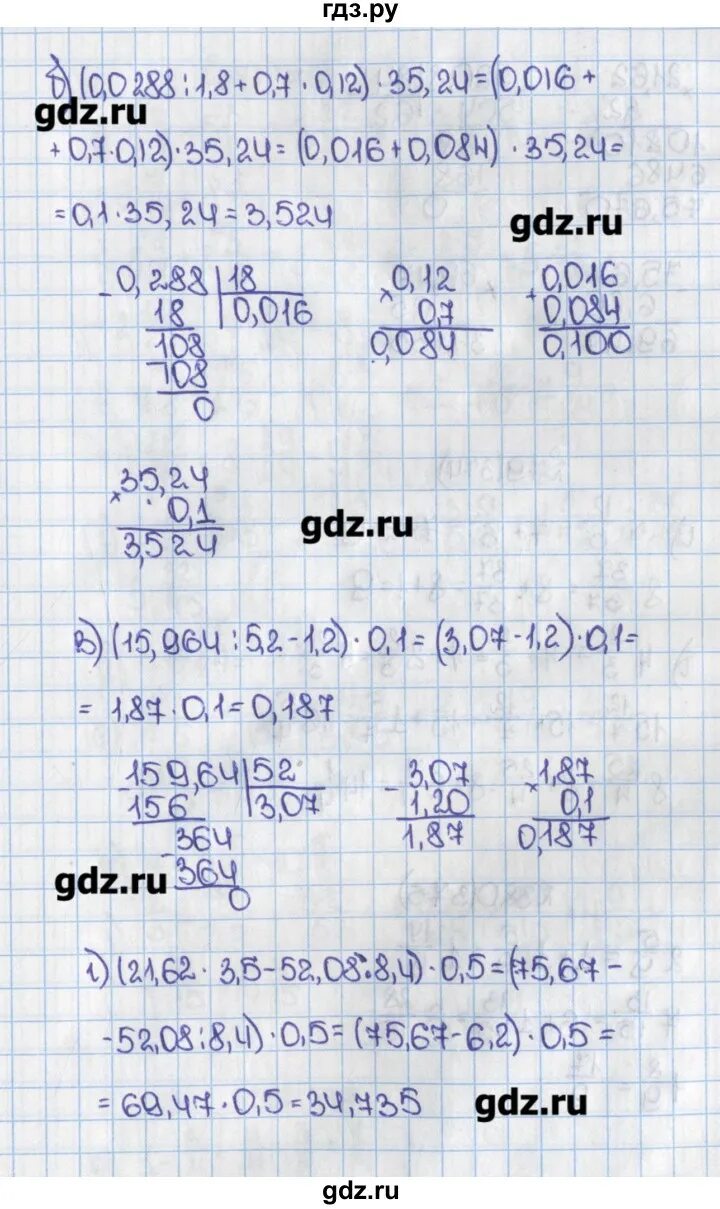 гдз.ру
б) (0,0288 : 1,8 + 0,7 · 0,12) · 35,24 = (0,016 +
gdz.ru
+ 0,7 · 0,12) · 35,24 = (0,016 + 0,084) · 35,24 =
= 0,1 · 35,24 = 3,524
gdz.ru
- 0,288 | 18
18
0,016
108
- 108
0
× 0,12
0,7
0,084
+ 0,016
0,084
0,100
× 35,24
0,1
3,524
gdz.ru
в) (15,964 : 5,2 - 1,2) · 0,1 = (3,07 - 1,2) · 0,1 =
= 1,87 · 0,1 = 0,187
- 159,64 | 52
156
3,07
- 364
364
0
- 3,07
1,20
1,87
× 1,87
0,1
0,187
gdz.ru
г) (21,62 · 3,5 - 52,08 : 8,4) · 0,5 = (75,67 -
- 52,08 : 8,4) · 0,5 = (75,67 - 6,2) · 0,5 =
= 69,47 · 0,5 = 34,735
gdz.ru
gdz.ru